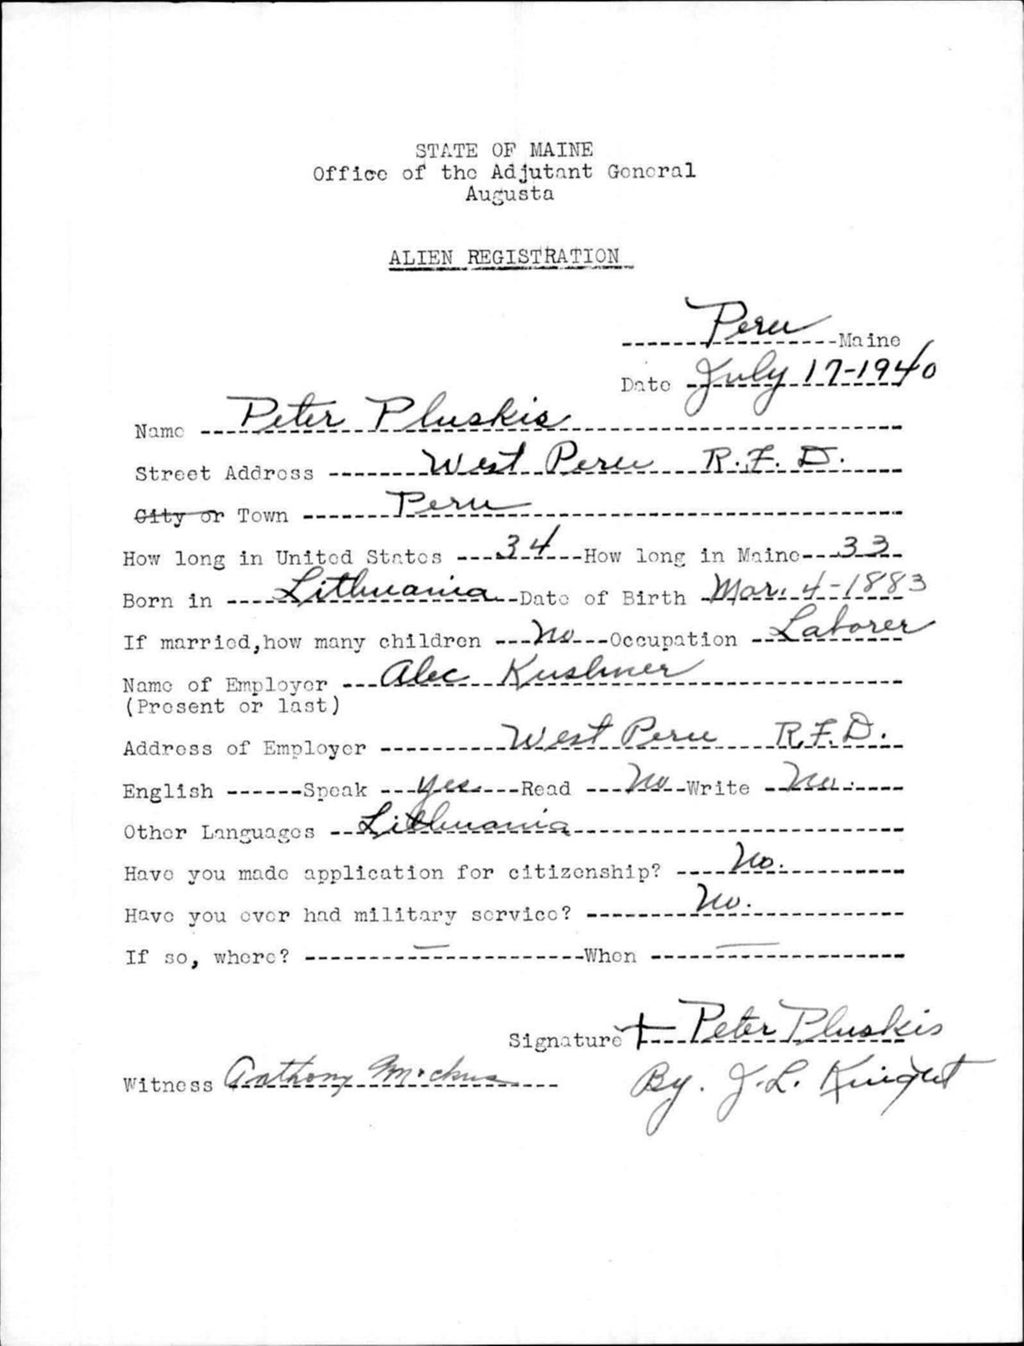 STATE OF MAINE
Office of the Adjutant General
Augusta
ALIEN REGISTRATION
Peru Maine
Date July 17-1940
Name Peter Pluskis
Street Address West Peru R.F.D.
City or Town Peru
How long in United States 34 How long in Maine 33
Born in Lithuania Date of Birth Mar. 4-1883
If married, how many children No Occupation Laborer
Name of Employer Alec Kushner
(Present or last)
Address of Employer West Peru R.F.D.
English Speak yes Read No Write No.
Other Languages Lithuania
Have you made application for citizenship? No.
Have you ever had military service? No.
If so, where? — When —
Signature + Peter Pluskis
Witness Anthony By. J.L. Knight